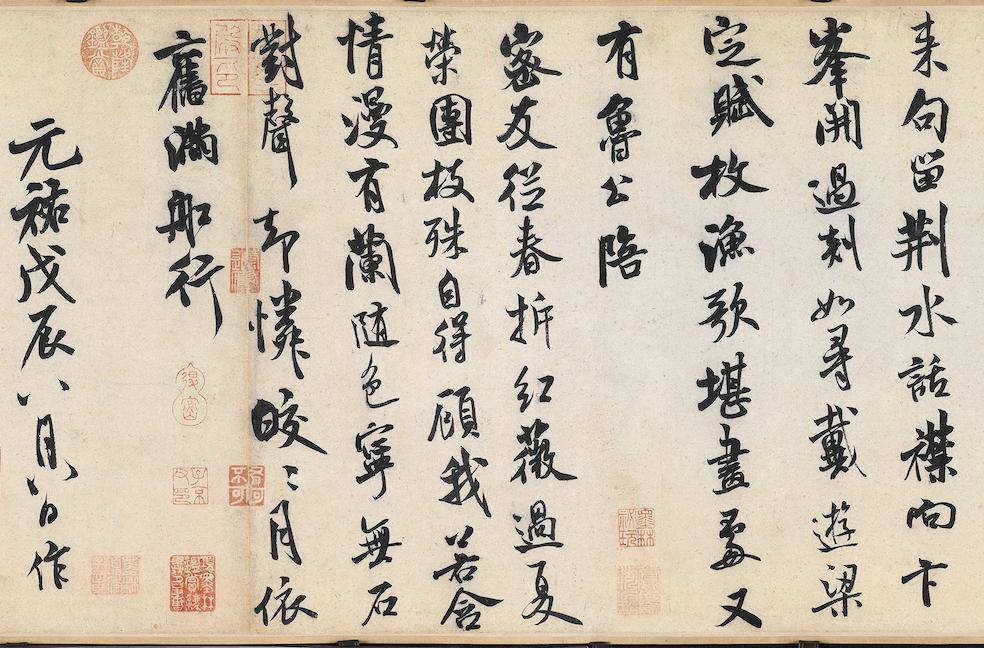 来句留荆水話襟向卞
峯開過剡如尋戴遊梁
定賦枚漁歌堪畫處又
有魯公陪
密友從春拆紅薇過夏
榮團枝殊自得顧我若含
情漫有蘭随色寧無石
對聲却憐皎〻月依
舊滿船行
元祐戊辰八月八日作